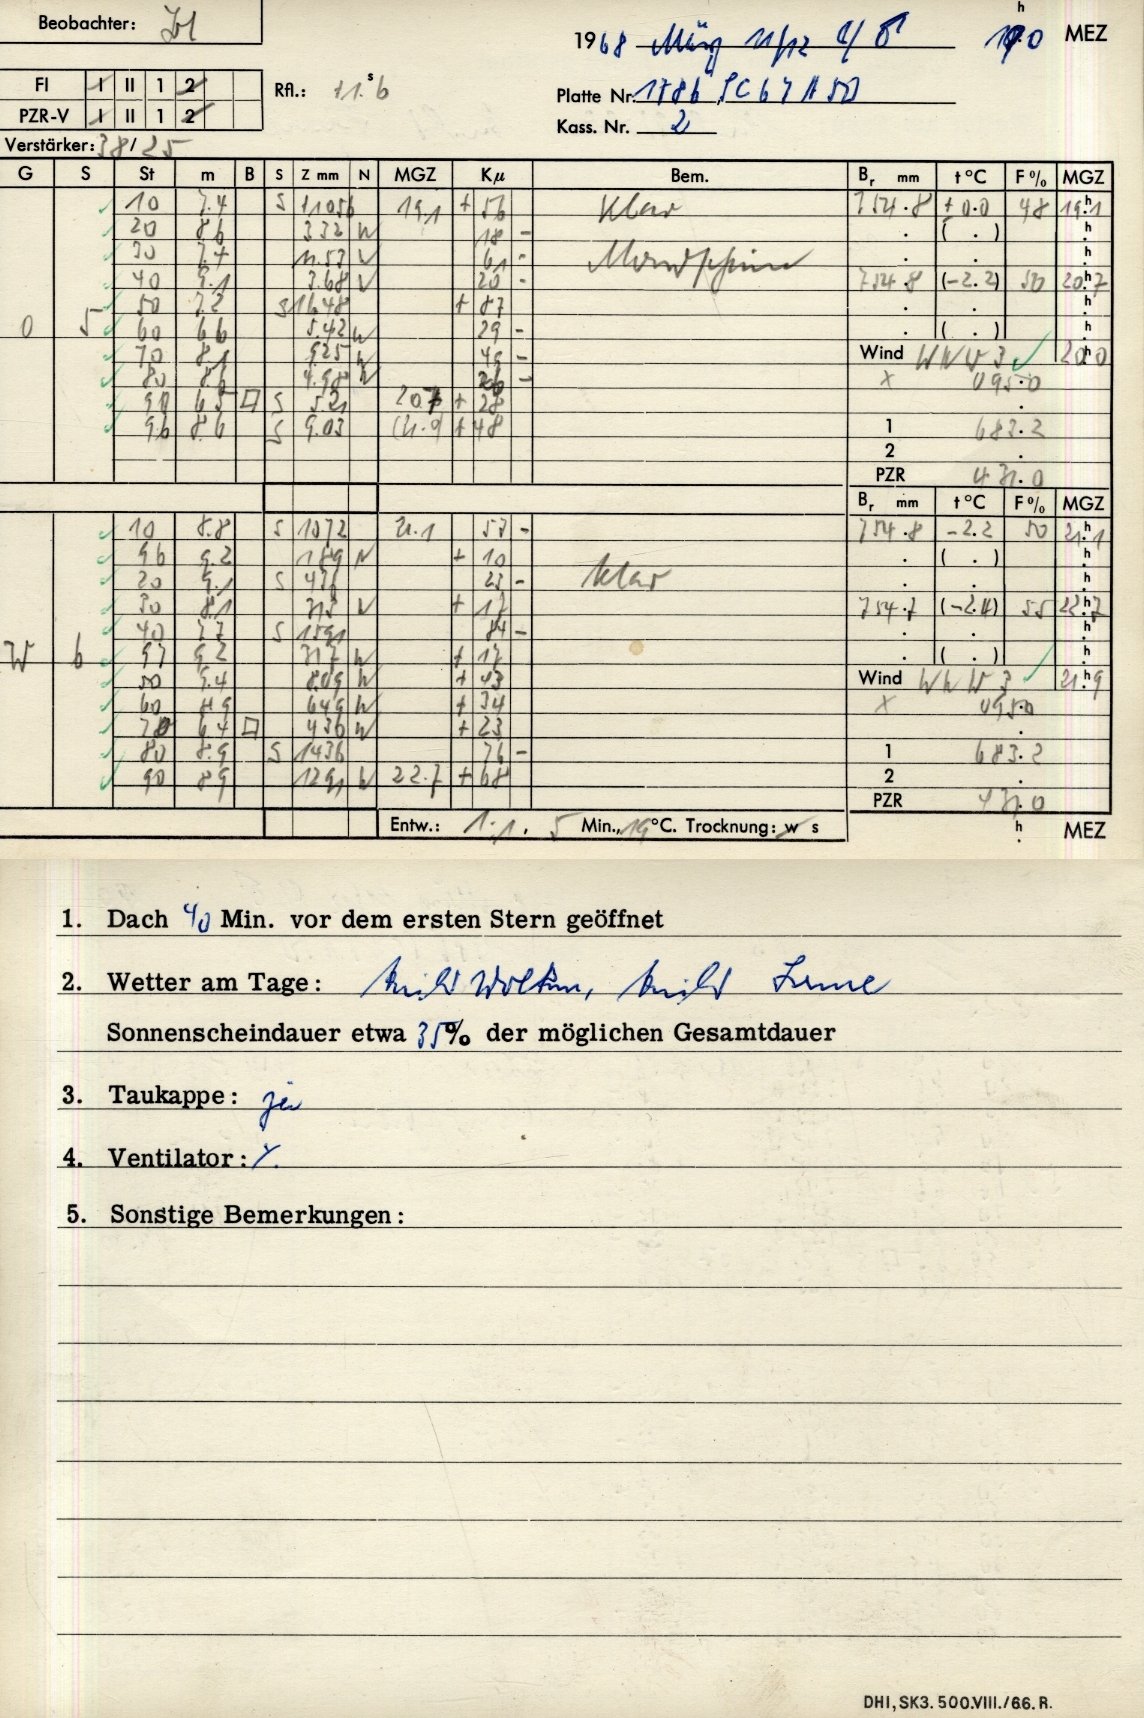 Beobachter:
1968 März 11/12 h MEZ
FI I II 1 2
PZR-V I II 1 2
Rfl.: +1.ˢ6
Platte Nr. 1786
Kass. Nr. 2
Verstärker: 38/25
G S St m B S Z mm N MGZ Kμ Bem. Bᵣ mm t°C F% MGZ
10 7.4 S 11056 19.1 + 56 klar 754.8 +0.0 48 19ʰ.1
20 8.6 332 N 18 - . ( . ) ʰ
30 7.4 11.53 N 61 - Mondschein . . ʰ
40 9.1 3.68 N 20 - 754.8 (-2.2) 50 20ʰ.7
50 7.2 S 1648 + 87 . . ʰ
O 5 60 6.6 5.42 N 29 - . ( . ) ʰ
70 8.1 925 N 49 - Wind WNW 3 20ʰ.0
80 8.6 4.98 N 26 - x 095.0
90 6.5 □ S 521 20.7 + 28 .
96 8.6 S 9.03 (21.9 + 48 1 683.2
2 .
PZR 431.0
Bᵣ mm t°C F% MGZ
10 8.8 S 1072 21.1 57 - 754.8 -2.2 50 21ʰ.1
96 9.2 189 N + 10 . ( . ) ʰ
20 9.1 S 436 23 - klar . . ʰ
30 8.1 313 N + 17 754.7 (-2.4) 55 22ʰ.7
40 7.7 S 1591 84 - . . ʰ
W 6 97 9.2 317 N + 17 . ( . ) ʰ
50 9.4 8.09 N + 43 Wind WNW 3 21ʰ.9
60 8.9 649 N + 34 x 095.0
70 6.4 □ 436 N + 23 .
80 8.9 S 1436 76 - 1 683.2
90 8.9 1291 N 22.7 + 68 2 .
PZR 431.0
Entw.: 1:1, 5 Min., 19°C. Trocknung: w s ʰ MEZ
1. Dach 40 Min. vor dem ersten Stern geöffnet
2. Wetter am Tage: teils Wolken, teils Sonne
Sonnenscheindauer etwa 35% der möglichen Gesamtdauer
3. Taukappe: ja
4. Ventilator:
5. Sonstige Bemerkungen:
DHI, SK3. 500.VIII./66. R.